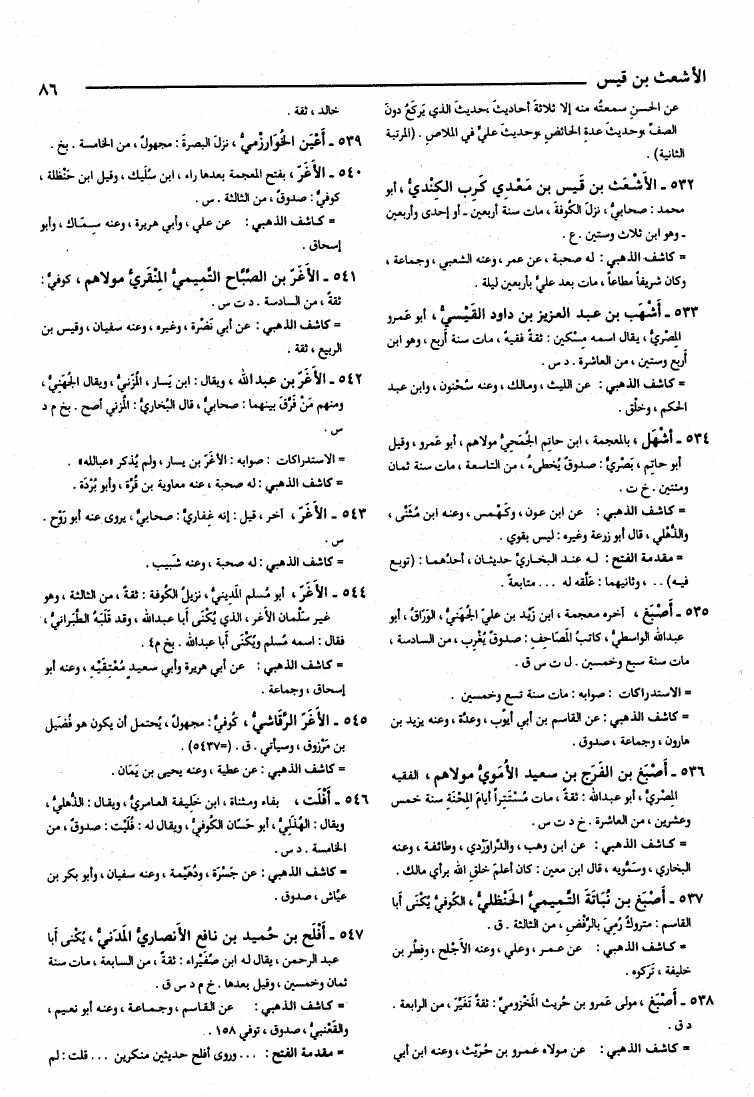 الأشعث بن قيس ٨٦
عن الحسنِ سمعتُه منه إلا ثلاثةَ أحاديثَ،حديثَ الذي يَركَعُ دونَ
الصفِّ،وحديثَ عدةِ الحائضِ،وحديثَ عليٍّ في الملاصِ. (المرتبة
الثانية).
٥٣٢ ـ الأَشْعَث بن قَيس بن مَعْدِي كَرِب الكِنْديُّ، أبو
محمد: صحابيٌّ، نزلَ الكُوفةَ، مات سنة أربعين ـ أو إحدى وأربعين
ـ وهو ابن ثلاث وستين. ع.
= كاشف الذهبي: له صحبة، عن عمر، وعنه الشعبي، وجماعة،
وكان شريفاً مطاعاً، مات بعد عليٍّ بأربعين ليلة.
٥٣٣ ـ أَشْهَب بن عبد العزيز بن داود القَيْسيُّ، أبو عَمرو
المِصريُّ، يقال اسمه مِسْكين: ثقةٌ فقيهٌ، مات سنة أربع، وهو ابن
أربع وستين، من العاشرة. د س.
= كاشف الذهبي: عن الليث، ومالك، وعنه سُحْنون، وابن عبد
الحكم، وخلْق.
٥٣٤ ـ أَشْهَل، بالمعجمة، ابن حاتِم الجُمَحيُّ مولاهم، أبو عَمرو، وقيل
أبو حاتِم، بَصْريٌّ: صدوقٌ يُخطىءُ، من التاسعة، مات سنة ثمان
ومئتين. خ ت.
= كاشف الذهبي: عن ابن عون، وكَهْمس، وعنه ابن مُثَنَّى،
والذُّهْلي، قال أبو زرعة وغيره: ليس بقوي.
= مقدمة الفتح: لـه عنـد البخـاريِّ حديثـان، أحدُهمـا: (توبـع
فيـه)..، وثانيهما: عَلَّقه له ... متابعةً.
٥٣٥ ـ أَصْبَغ، آخره معجمة، ابن زَيْد بن عليّ الجُهَنيُّ، الورّاقُ، أبو
عبدالله الواسطيُّ، كاتبُ المَصَاحِفِ: صدوقٌ يُغْرِب، من السادسة،
مات سنة سبع وخمسين. ل ت س ق.
= الاستدراكات: صوابه: مات سنة تسع وخمسين.
= كاشف الذهبي: عن القاسم بن أبي أيوب، وعدَّة، وعنه يزيد بن
هارون، وجماعة، صدوق.
٥٣٦ ـ أَصْبَغ بن الفَرَج بن سعيد الأُمَويُّ مولاهم، الفقيه
المِصْريُّ، أبو عبدالله: ثقةٌ، مات مُسْتَتِراً أيامَ المِحْنَةِ سنة خمس
وعشرين، من العاشرة. خ د ت س.
= كاشف الذهبي: عن ابن وهب، والدَّرَاوَرْدي، وطائفة، وعنه
البخاري، وسَمُّويه، قال ابن معين: كان أعلمَ خلقِ الله برأي مالك.
٥٣٧ ـ أَصْبَغ بن نُبَاتَة التَّمِيميُّ الحَنظليُّ، الكوفيُّ يُكْنَى أبا
القاسم: متروكٌ رُمِيَ بالرَّفْضِ، من الثالثة. ق.
= كاشف الذهبي: عن عمـر، وعلي، وعنه الأَجْلح، وفِطْر بن
خليفة، تَرَكوه.
٥٣٨ ـ أَصْبَغ، مولى عَمرو بن حُريث المَخْزوميّ: ثقةٌ تَغَيَّرَ، من الرابعة.
د ق.
= كاشف الذهبي: عن مولاه عمـرو بن حُرَيْث، وعنه ابن أبي
خالد، ثقة.
٥٣٩ ـ أَعْيَن الخُوَارزْميُّ، نزلَ البصرةَ: مجهولٌ، من الخامسة. بخ.
٥٤٠ ـ الأَغَرّ، بفتح المعجمة بعدها راء، ابن سُلَيك، وقيل ابن حَنْظلة،
كوفيٌّ: صدوقٌ، من الثالثة. س.
= كاشف الذهبي: عن علي، وأبي هريرة، وعنه سِمَـاك، وأبو
إسحاق.
٥٤١ ـ الأَغَرّ بن الصَّبَّاح التَّمِيميُّ المِنْقَريُّ مولاهم، كوفيٌّ:
ثقةٌ، من السادسة. د ت س.
= كاشف الذهبي: عن أبي نَضْرة، وغيره، وعنه سفيان، وقيس بن
الربيع، ثقة.
٥٤٢ ـ الأَغَرّ بن عبدالله، ويقال: ابن يَسار، المُزَنيُّ، ويقال الجُهَنيُّ،
ومنهم مَنْ فَرَّقَ بينهما: صحابيٌّ، قال البُخاريُّ: المُزني أصح. بخ م د
س.
= الاستدراكات: صوابه: الأغَرّ بن يسار، ولم يُذكر «عبالله».
= كاشف الذهبي: له صحبة، عنه معاوية بن قُرَّة، وأبو بُرْدَة.
٥٤٣ ـ الأَغَرّ، آخر، قيل: إنه غِفاريٌّ: صحابيٌّ، يروى عنه أبو رَوْح.
س.
= كاشف الذهبي: له صحبة، وعنه شَبيب.
٥٤٤ ـ الأَغَرّ، أبو مُسلم المَدِينيُّ، نزيلُ الكوفة: ثقةٌ، من الثالثة، وهو
غير سَلْمان الأغر، الذي يُكْنَى أبا عبدالله، وقد قَلَبَهُ الطَّبَرانيُّ،
فقال: اسمه مُسلم ويُكْنَى أبا عبدالله. بخ م٤.
= كاشف الذهبي: عن أبي هريرة وأبي سعيد مُعْتِقَيْهِ، وعنه أبو
إسحاق، وجماعة.
٥٤٥ ـ الأَغَرّ الرَّقَاشيُّ، كُوفيٌّ: مجهولٌ، يُحتمل أن يكون هو فُضَيل
بن مَرْزوق، وسيأتي. ق. (=٥٤٣٧).
= كاشف الذهبي: عن عطية، وعنه يحيى بن يَمَان.
٥٤٦ ـ أَفْلَت، بفاء ومثناة، ابن خَلِيفة العامريُّ، ويقال: الذُّهليُّ،
ويقال: الهُذَليُّ، أبو حَسَّان الكُوفيُّ، ويقال له: فُلَيْت: صدوقٌ، من
الخامسة. د س.
= كاشف الذهبي: عن جَسْرَة، ودُهَيْمة، وعنه سفيان، وأبو بكر بن
عيَّاش، صدوق.
٥٤٧ ـ أَفْلَح بن حُميد بن نافع الأنصاريُّ المدَنيُّ، يُكْنَى أبا
عبد الرحمن، يقال له ابن صُفَيْراء: ثقةٌ، من السابعة، مات سنة
ثمان وخمسين، وقيل بعدها. خ م د س ق.
= كاشف الذهبي: عن القـاسم، وجمـاعـة، وعنه أبو نعيم،
والقَعْنبيُّ، صدوق، توفي ١٥٨.
= مقدمة الفتح: ... وروى أفلح حديثين منكرين ... قلت: لم